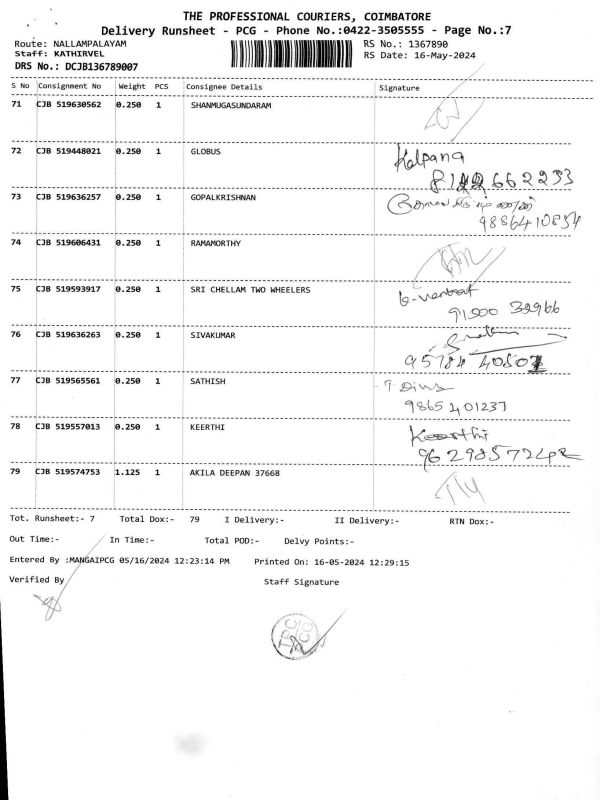 THE PROFESSIONAL COURIERS, COIMBATORE
Delivery Runsheet - PCG - Phone No.:0422-3505555 - Page No.:7
Route: NALLAMPALAYAM RS No.: 1367890
Staff: KATHIRVEL RS Date: 16-May-2024
DRS No.: DCJB136789007
S No Consignment No Weight PCS Consignee Details Signature
71 CJB 519630562 0.250 1 SHANMUGASUNDARAM
72 CJB 519448021 0.250 1 GLOBUS Kalpana
8122662233
73 CJB 519636257 0.250 1 GOPALKRISHNAN
9886410834
74 CJB 519606431 0.250 1 RAMAMORTHY
75 CJB 519593917 0.250 1 SRI CHELLAM TWO WHEELERS
91500 32966
76 CJB 519636263 0.250 1 SIVAKUMAR
95784 40807
77 CJB 519565561 0.250 1 SATHISH
9865401237
78 CJB 519557013 0.250 1 KEERTHI Keerthi
79 CJB 519574753 1.125 1 AKILA DEEPAN 37668
Tot. Runsheet:- 7 Total Dox:- 79 I Delivery:- II Delivery:- RTN Dox:-
Out Time:- In Time:- Total POD:- Delvy Points:-
Entered By :MANGAIPCG 05/16/2024 12:23:14 PM Printed On: 16-05-2024 12:29:15
Verified By Staff Signature